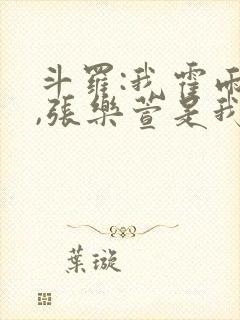 斗羅:我霍雨
,張樂萱是我
葉璇